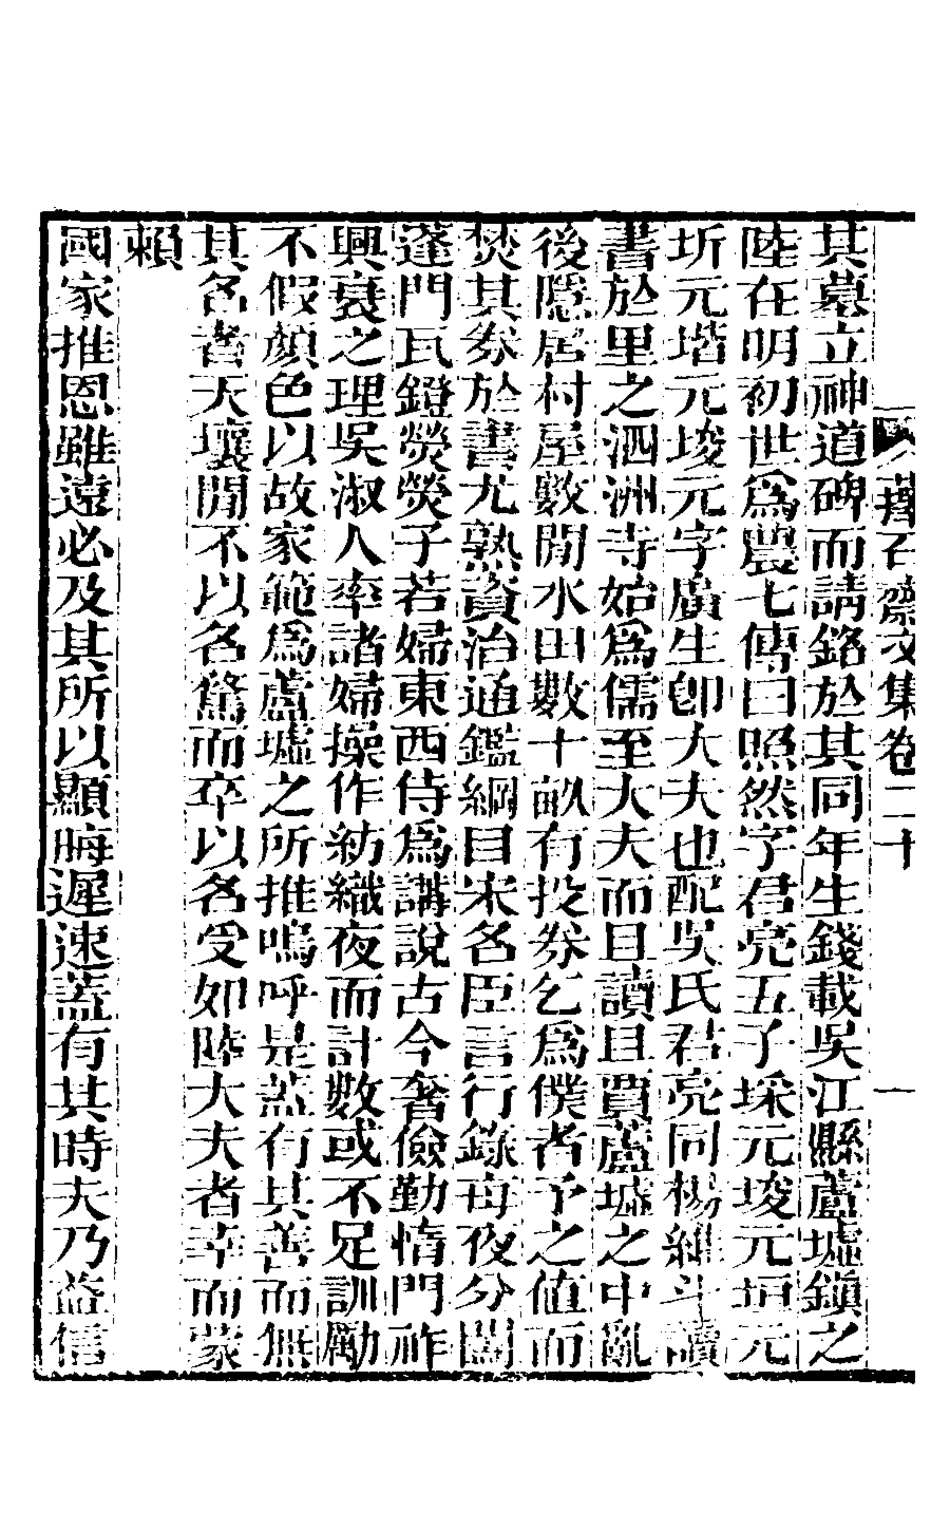 蘀石齋文集卷二十 一
其墓立神道碑而請銘於其同年生錢載吳江縣蘆墟鎭之
陸在明初世爲農七傳曰照然字君亮五子埰元埈元垣元
圻元堦元埈元字廣生卽大夫也配吳氏君亮同楊維斗讀
書於里之泗洲寺始爲儒至大夫而且讀且賈蘆墟之中亂
後隱居村屋數閒水田數十畝有投劵乞爲僕者予之値而
焚其劵於書尤熟資治通鑑綱目宋名臣言行錄每夜分闔
蓬門瓦鐙熒熒子若婦東西侍爲講說古今奢儉勤惰門祚
興衰之理吳淑人率諸婦操作紡織夜而計數或不足訓勵
不假顏色以故家範爲蘆墟之所推嗚呼是葢有其善而無
其名者天壤閒不以名驚而卒以名受如陸大夫者幸而蒙
賴
國家推恩雖遠必及其所以顯晦遲速葢有其時夫乃益信